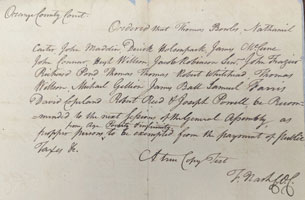 Orange County Court.
Ordered that Thomas Bowles Nathaniel
Carter John Madden Derick Holempack James McCane
John Connor Hugh Wilson Jacob Robinson Senr. John Frazier
Richard Pond Thomas Thomas Robert Whitehead Thomas
Wilson, Michael James Ball Samuel Parris
David Copeland Robert Reed & Joseph Powell, be Recom
mended to the next Session of the General Assembly, as
from Age
propper persons to be exempted from the payment of Public
Taxes &c.
A true Copy Test
F. Nash CC